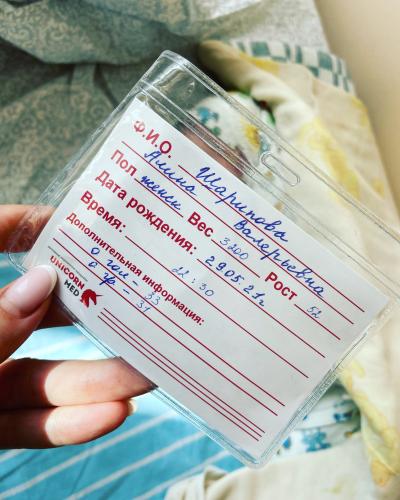 Ф.И.О. Шарипова
Алина Валерьевна
Пол женск Вес 3200 Рост 52
Дата рождения: 29.05.21г
Время: 22:30
Дополнительная информация:
О гол - 33
О гр - 31
UNICORN
MED